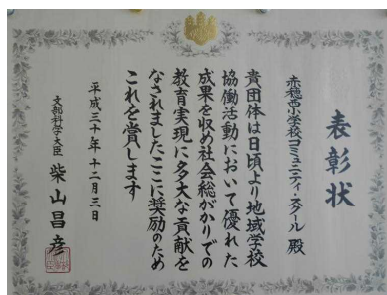 表彰状
赤穂小学校コミュニティ・スクール 殿
貴団体は日頃より地域学校
協働活動において優れた
成果を収め社会総がかりでの
教育実現に多大な貢献を
なされましたここに奨励のため
これを賞します
平成三十年十二月三日
文部科学大臣 柴山昌彦